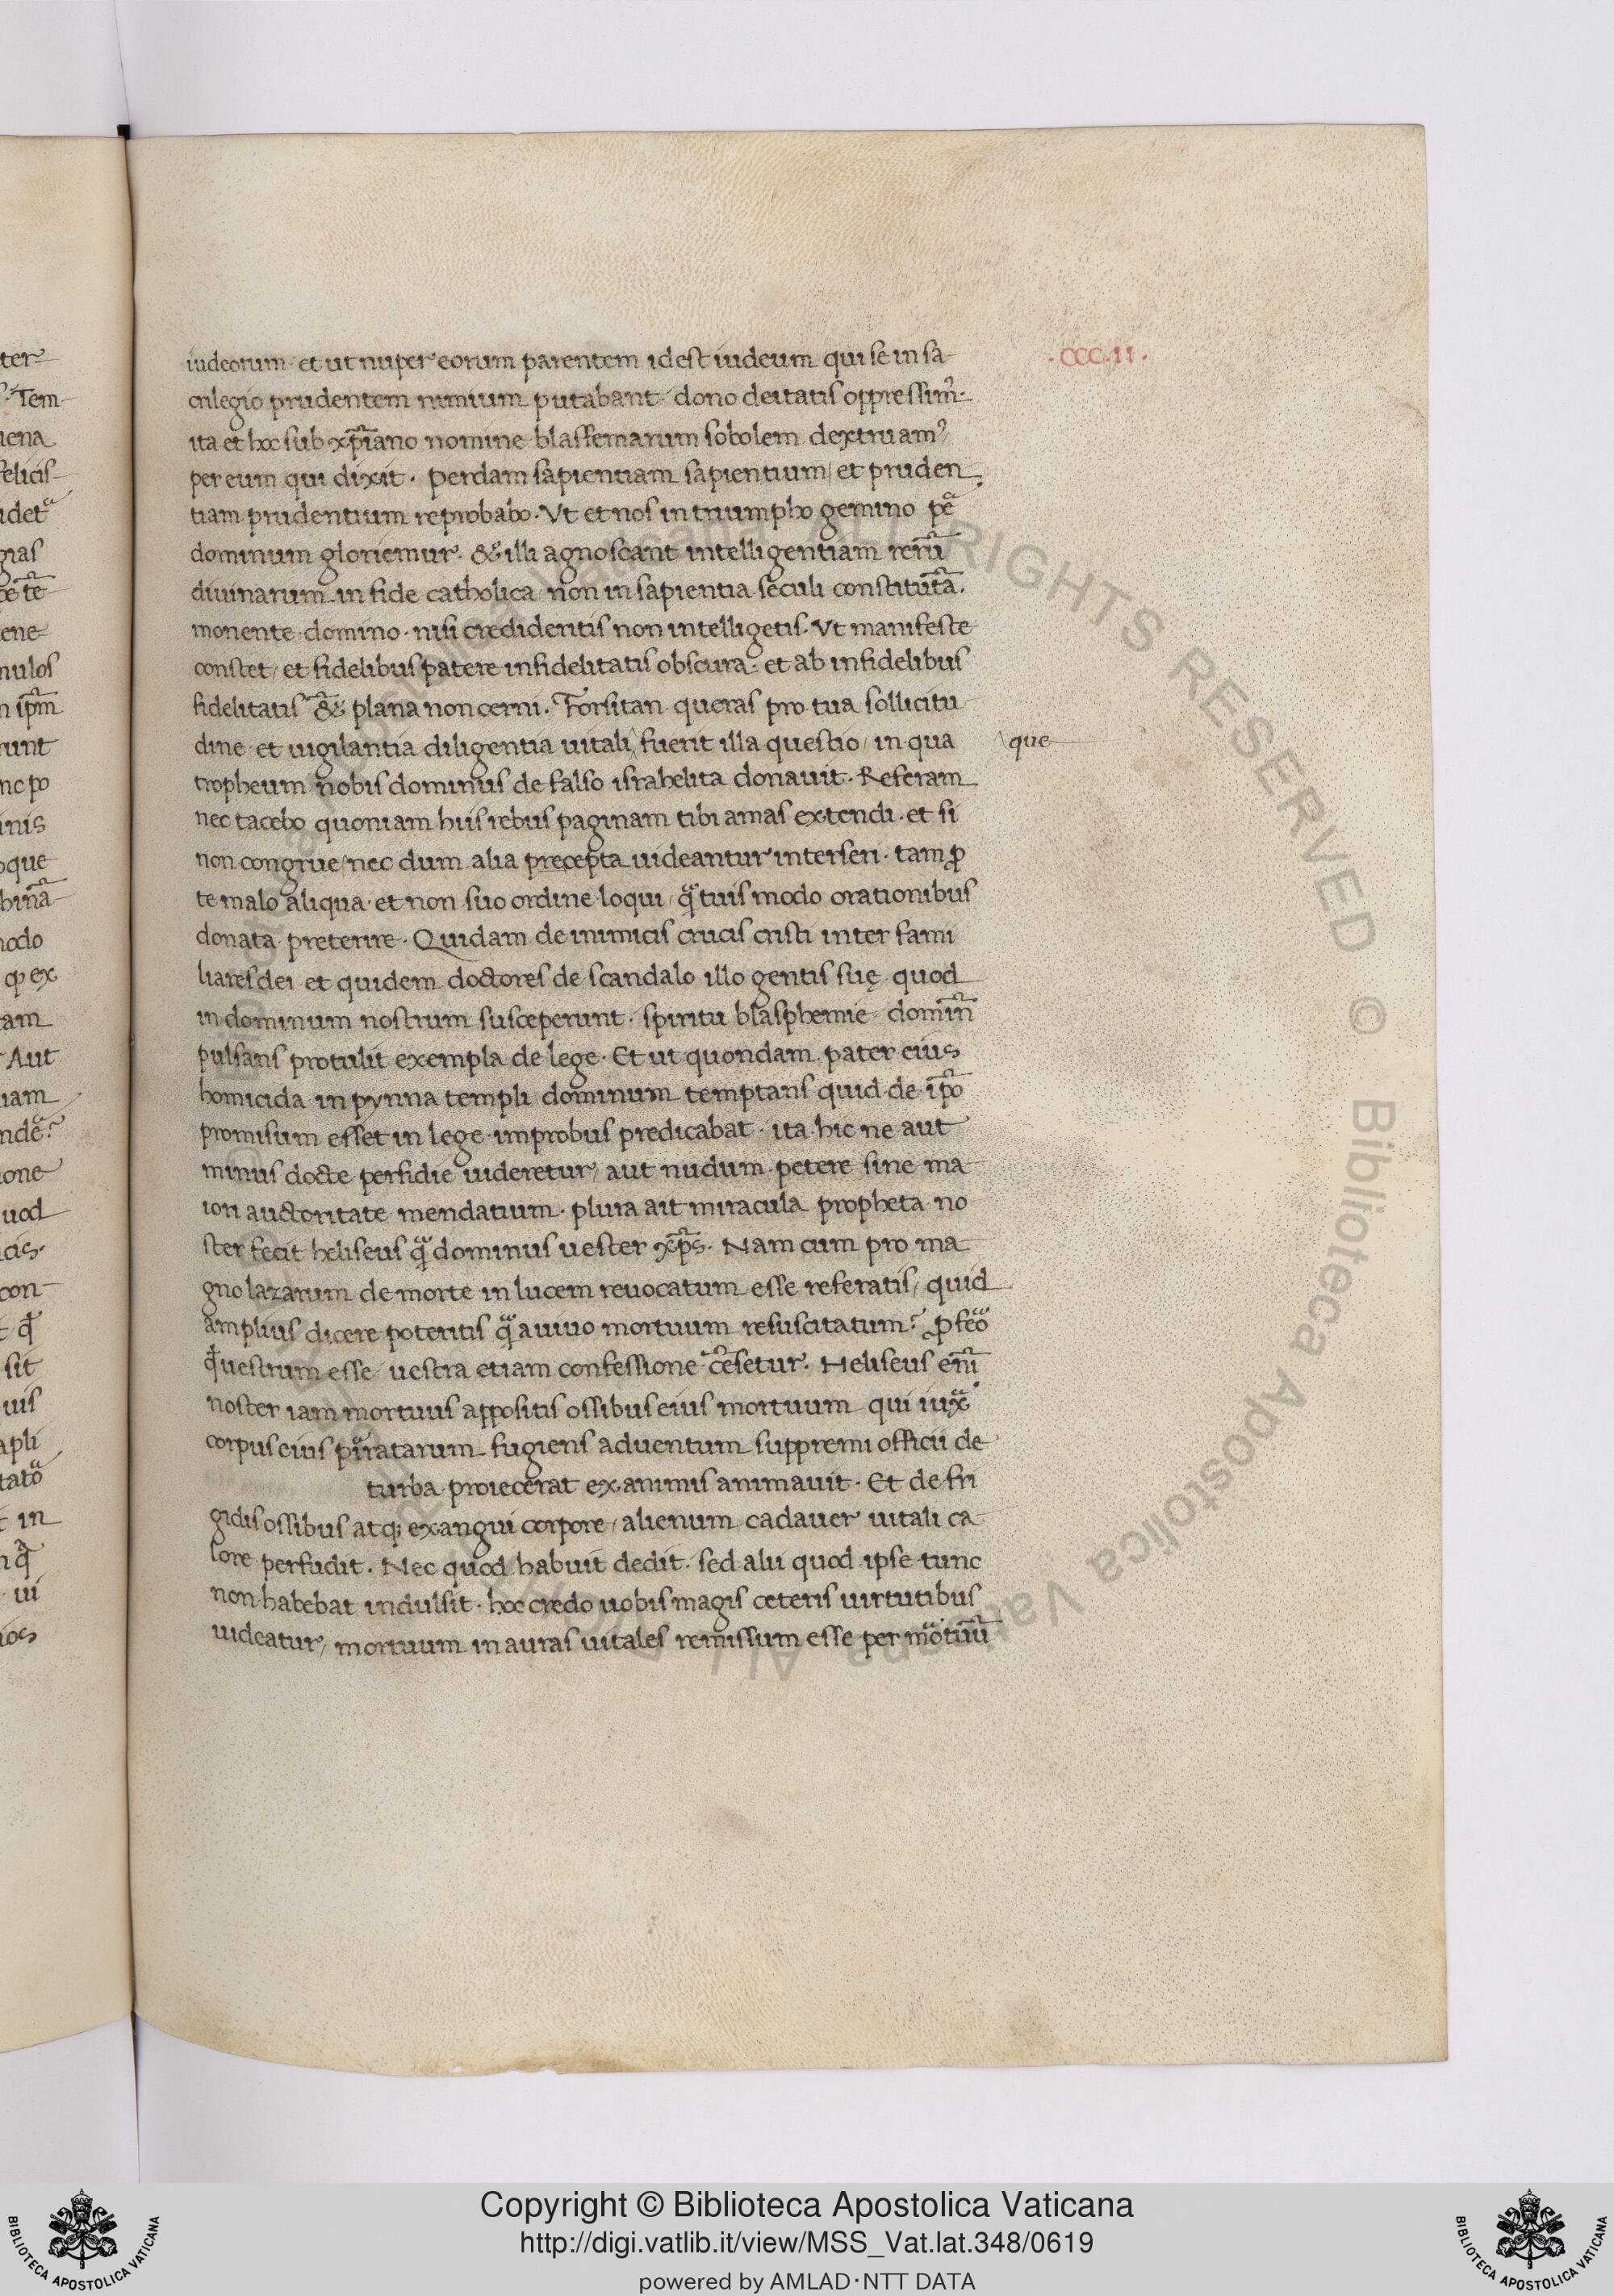 ter
iudeorum · et ut nuper eorum parentem id est iudeum qui se in sa
· CCC · II ·
· Tem
crilegio prudentem nimium putabant dono deitatis oppressim᷒ ·
ena
ita et hoc sub xp̅iano nomine blasfemarum sobolem dextruam
felicis
per eum qui dixit · perdam sapientiam sapientium / et pruden
tiam prudentium reprobabo · Vt et nos in triumpho gemino pe
dominum gloriemur · & illi agnoscant intelligentiam reru̅
diuinarum in fide catholica non in sapientia seculi constituta̅ ·
ene
monente domino · nisi credideritis non intelligetis · Vt manifeste
nulos
constet / et fidelibus patere infidelitatis obscura · et ab infidelibus
ip̅m
fidelitatis & plana non cerni · Forsitan queras pro tua sollicitu
runt
dine et uigilantia diligentia uitali fuerit illa questio / in qua
que
nc po
tropheum nobis dominus de falso israhelita donauit · Referam
inis
nec tacebo quoniam hiis rebus paginam tibi amas extendi · et si
oque
non congrue / nec dum alia precepta uideantur interseri · tam ꝓ
te malo aliqua et non suo ordine loqui / qᷓ tuis modo orationibus
odo
donata preterire · Quidam de inimicis crucis cristi inter fami
ꝙ ex
liares dei et quidem doctores de scandalo illo gentis suę quod
tam
in dominum nostrum susceperunt · spiritu blasphemie domin̅
Aut
pulsans protulit exempla de lege · Et ut quondam pater eius
iam
homicida in pynna templi dominum temptans quid de ip̅o
promisum esset in lege improbus predicabat · ita hic ne aut
one
minus docte perfidie uideretur / aut nudum petere sine ma
uod
iori auctoritate mendatium · plura ait miracula propheta no
cis ·
ster fecit heliseus qᷓ dominus uester xp̅s · Nam cum pro ma
con
gno lazarum de morte in lucem reuocatum esse referatis / quid
amplius dicere poteritis qᷓ a uiuo mortuum resuscitatum? ꝓfeᷓo
sit
q̅ uestrum esse / uestra etiam confessione ce̅setur · Heliseus eni̅
uis
noster iam mortuus appositis ossibus eius mortuum qui iuxᷓ
apli
corpus eius piratarum fugiens aduentum suppremi officii de
tatoᷓ
turba proiecerat exanimis animauit · Et de fri
in
gidis ossibus atq; exangui corpore / alienum cadauer uitali ca
lore perfudit · Nec quod habuit dedit · sed alii quod ipse tunc
ui
non habebat indulsit · hoc credo uobis magis ceteris uirtutibus
uideatur / mortuum in auras uitales remissum esse per moᷓtuu̅
ALL RIGHTS RESERVED © Biblioteca Apostolica Vaticana
Copyright © Biblioteca Apostolica Vaticana
http://digi.vatlib.it/view/MSS_Vat.lat.348/0619
powered by AMLAD · NTT DATA
BIBLIOTECA APOSTOLICA VATICANA
BIBLIOTECA APOSTOLICA VATICANA